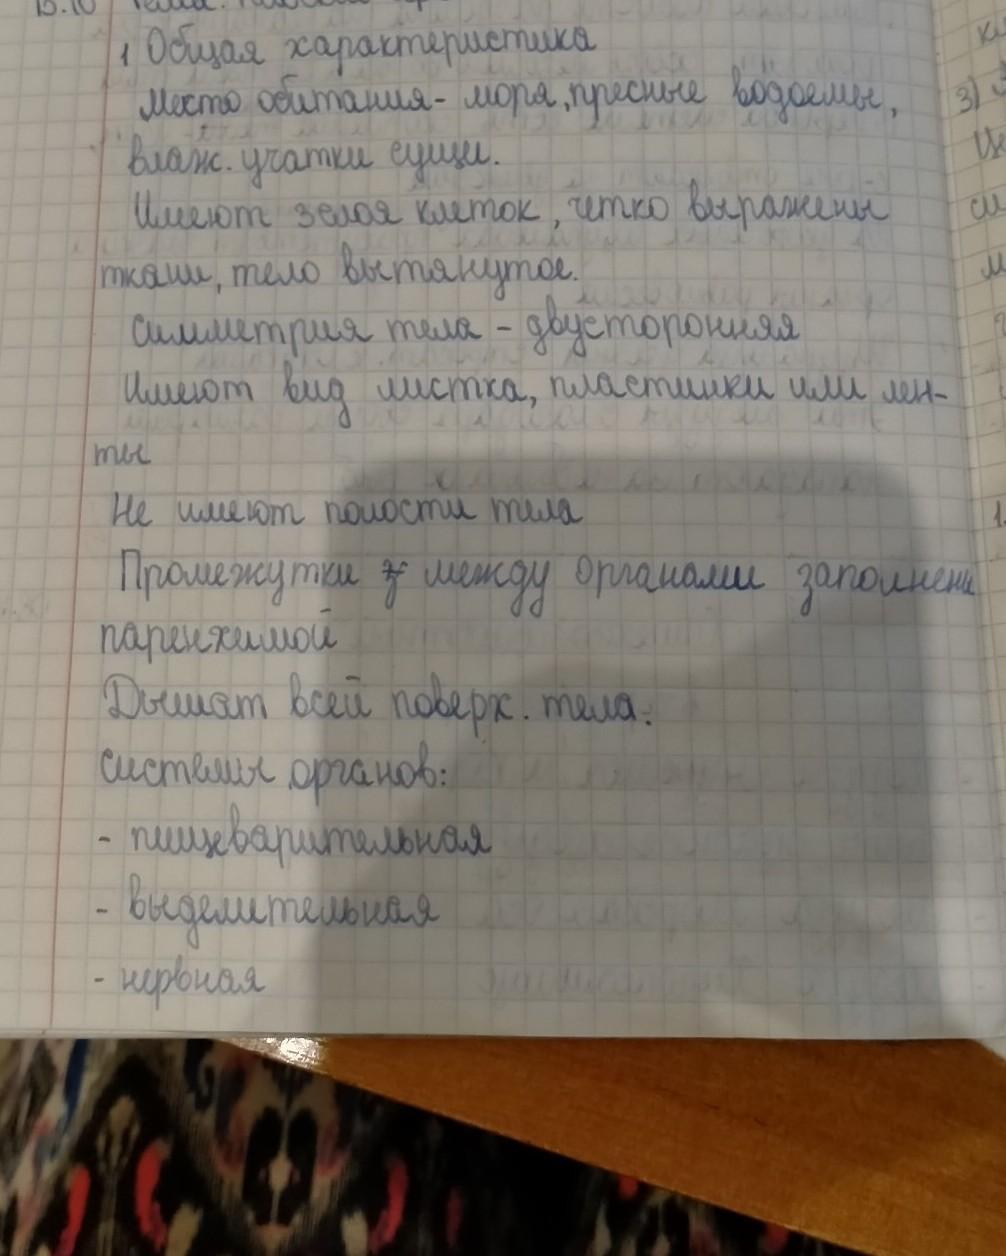 1 Общая характеристика
Место обитания - моря, пресные водоемы,
влаж. учатки сущи.
Имеют 3 слоя клеток, четко выражены
ткани, тело вытянутое.
симметрия тела - двусторонняя
Имеют вид листка, пластинки или лен-
ты
Не имеют полости тела
Промежутки между органами заполнены
паренхимой
Дышат всей поверх. тела.
системы органов:
- пищеварительная
- выделительная
- нервная
3)